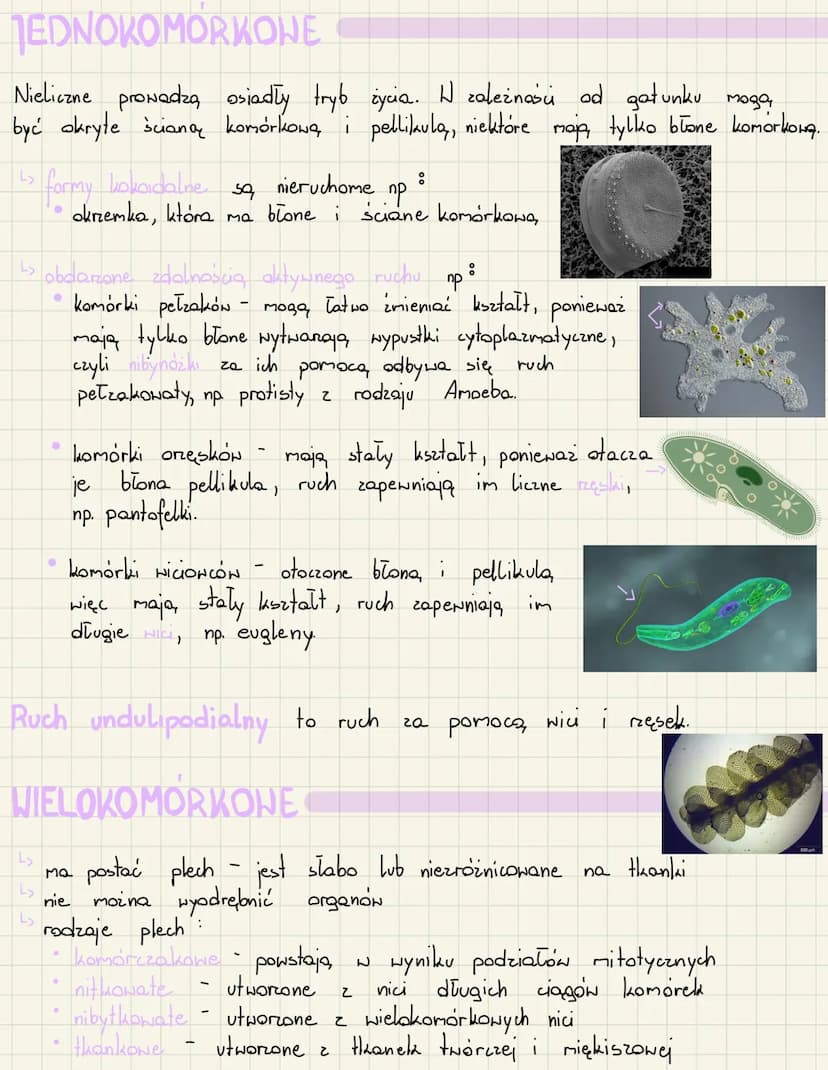 JEDNOKOMÓRKOWE
Nieliczne prowadzą osiadły tryb życia. W zależności od gatunku mogą
być okryte ścianą komórkową i pellikulą, niektóre mają tylko błonę komórkową.
↳ formy kokoidalne są nieruchome np:
• okrzemka, która ma błonę i ścianę komórkową
↳ obdarzone zdolnością aktywnego ruchu np:
• komórki pełzaków - mogą łatwo zmieniać kształt, ponieważ
mają tylko błonę wytwarzają wypustki cytoplazmatyczne,
czyli nibynóżki za ich pomocą odbywa się ruch
pełzakowaty, np. protisty z rodzaju Amoeba.
• komórki orzęsków - mają stały kształt, ponieważ otacza
je błona pellikula, ruch zapewniają im liczne rzęski,
np. pantofelki.
• komórki wiciowców - otoczone błoną i pellikulą
więc mają stały kształt, ruch zapewniają im
długie wici, np. eugleny.
Ruch undulipodialny to ruch za pomocą wici i rzęsek.
WIELOKOMÓRKOWE
↳ ma postać plech - jest słabo lub niezróżnicowane na tkanki
↳ nie można wyodrębnić organów
↳ rodzaje plech:
• komórczakowe - powstają w wyniku podziałów mitotycznych
• nitkowate - utworzone z nici długich ciągów komórek
• nibytkowate - utworzone z wielokomórkowych nici
• tkankowe - utworzone z tkanek twórczej i miękiszowej